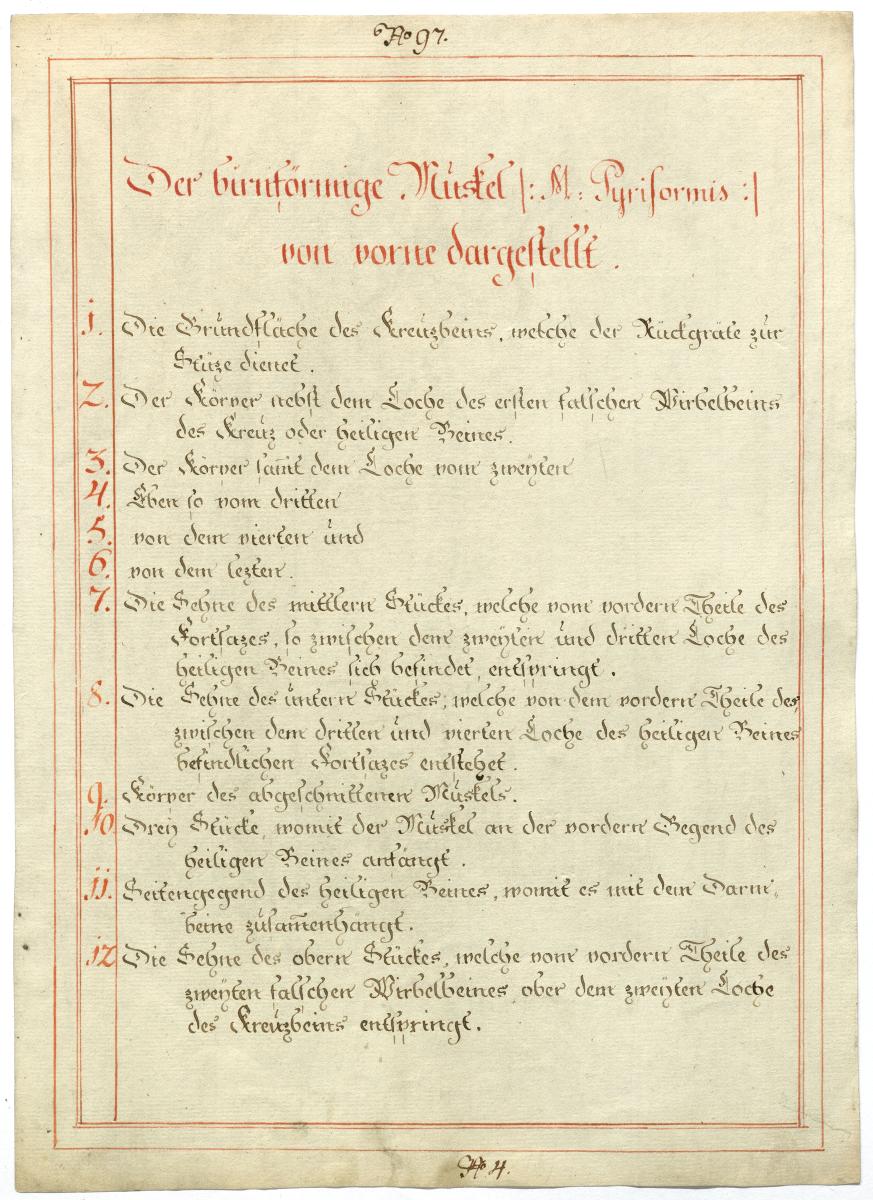 No 97.
Der birnförmige Muskel |: M: Pyriformis :|
von vorne dargestellt.
1. Die Grundfläche des Kreuzbeins, welche der Rückgräte zur
Stüze dienet.
2. Der Körper nebst dem Loche des ersten falschen Wirbelbeins
des Kreuz oder heiligen Beines.
3. Der Körper sam̄t dem Loche vom zweyten
4. Eben so vom dritten
5. von dem vierten und
6. von dem lezten.
7. Die Sehne des mittlern Stückes, welche vom vordern Theile des
Fortsazes, so zwischen dem zweyten und dritten Loche des
heiligen Beines sich befindet, entspringt.
8. Die Sehne des untern Stückes, welche von dem vordern Theile des,
zwischen dem dritten und vierten Loche des heiligen Beines
befindlichen Fortsazes entstehet.
9. Körper des abgeschnittenen Muskels.
10 Drey Stücke, womit der Muskel an der vordern Gegend des
heiligen Beines anfängt.
11. Seitengegend des heiligen Beines, womit es mit dem Darm-
beine zusam̄enhängt.
12 Die Sehne des obern Stückes, welche vom vordern Theile des
zweyten falschen Wirbelbeines ober dem zweyten Loche
des Kreuzbeins entspringt.
No 4.